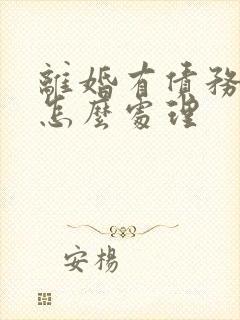 離婚有債務
怎麼處理
安楊